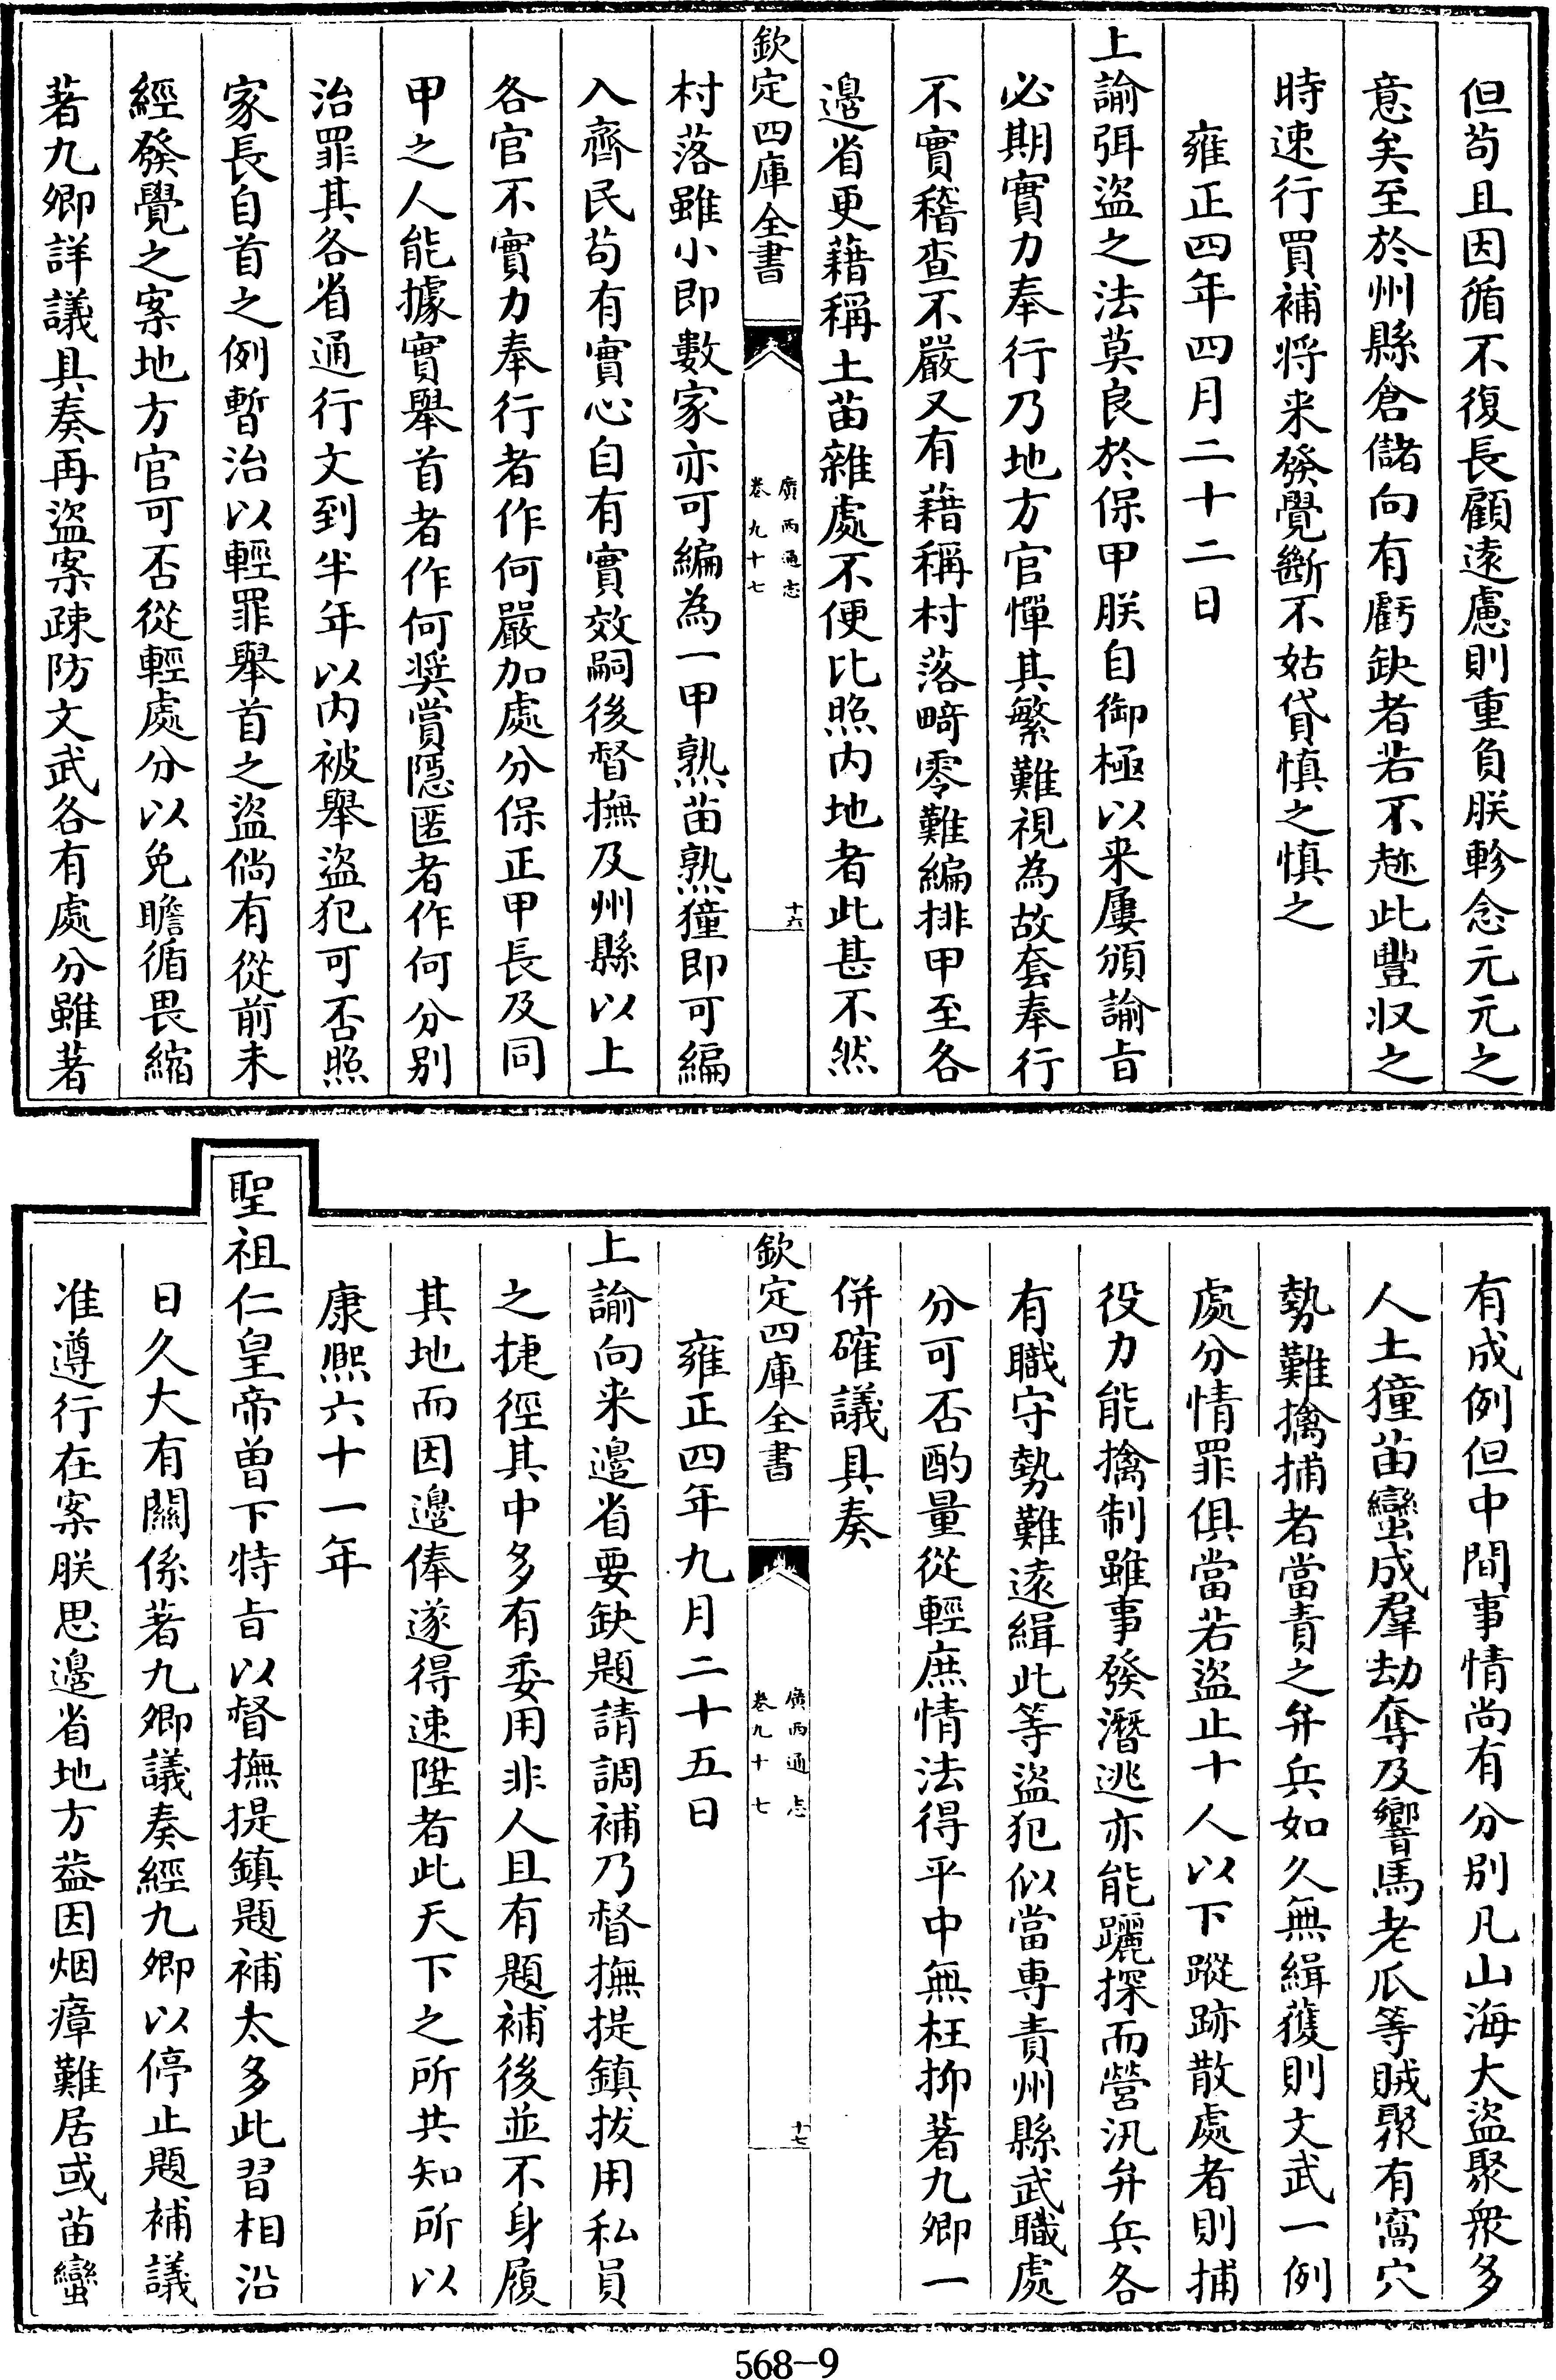 但苟且因循不復長顧遠慮則重負朕軫念元元之
意矣至於州縣倉儲向有虧缺者若不趂此豐収之
時速行買補将来發覺斷不姑貸慎之慎之
雍正四年四月二十二日
上諭弭盜之法莫良於保甲朕自御極以来屢頒諭旨
必期實力奉行乃地方官憚其繁難視為故套奉行
不實稽查不嚴又有藉稱村落畸零難編排甲至各
邊省更藉稱土苗雜處不便比照内地者此甚不然
欽定四庫全書
廣西通志
卷九十七
十六
村落雖小即數家亦可編為一甲熟苗熟獞即可編
入齊民苟有實心自有實效嗣後督撫及州縣以上
各官不實力奉行者作何嚴加處分保正甲長及同
甲之人能據實舉首者作何奨賞隱匿者作何分别
治罪其各省通行文到半年以内被舉盜犯可否照
家長自首之例暫治以輕罪舉首之盜倘有從前未
經發覺之案地方官可否從輕處分以免瞻循畏縮
著九卿詳議具奏再盜案疎防文武各有處分雖著
有成例但中間事情尚有分别凡山海大盜聚衆多
人土獞苗蠻成羣劫奪及響馬老瓜等賊聚有窩穴
勢難擒捕者當責之弁兵如久無緝獲則文武一例
處分情罪俱當若盜止十人以下蹤跡散處者則捕
役力能擒制雖事發潛逃亦能躧探而營汛弁兵各
有職守勢難遠緝此等盜犯似當専責州縣武職處
分可否酌量從輕庶情法得平中無枉抑著九卿一
併確議具奏
欽定四庫全書
廣西通志
卷九十七
十七
雍正四年九月二十五日
上諭向来邊省要缺題請調補乃督撫提鎮拔用私員
之捷徑其中多有委用非人且有題補後並不身履
其地而因邊俸遂得速陞者此天下之所共知所以
康熙六十一年
聖祖仁皇帝曽下特旨以督撫提鎮題補太多此習相沿
日久大有關係著九卿議奏經九卿以停止題補議
准遵行在案朕思邊省地方葢因烟瘴難居或苗蠻
568-9